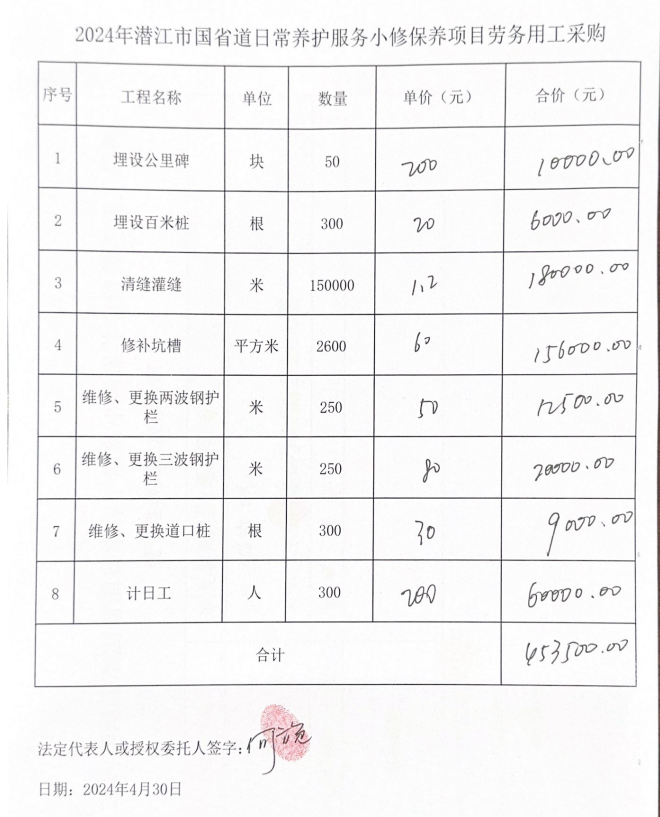 2024年潜江市国省道日常养护服务小修保养项目劳务用工采购
序号 工程名称 单位 数量 单价（元） 合价（元）
1 埋设公里碑 块 50 200 10000.00
2 埋设百米桩 根 300 20 6000.00
3 清缝灌缝 米 150000 1.2 180000.00
4 修补坑槽 平方米 2600 60 156000.00
5 维修、更换两波钢护栏 米 250 50 12500.00
6 维修、更换三波钢护栏 米 250 80 20000.00
7 维修、更换道口桩 根 300 30 9000.00
8 计日工 人 300 200 60000.00
合计 453500.00
法定代表人或授权委托人签字：何
日期：2024年4月30日